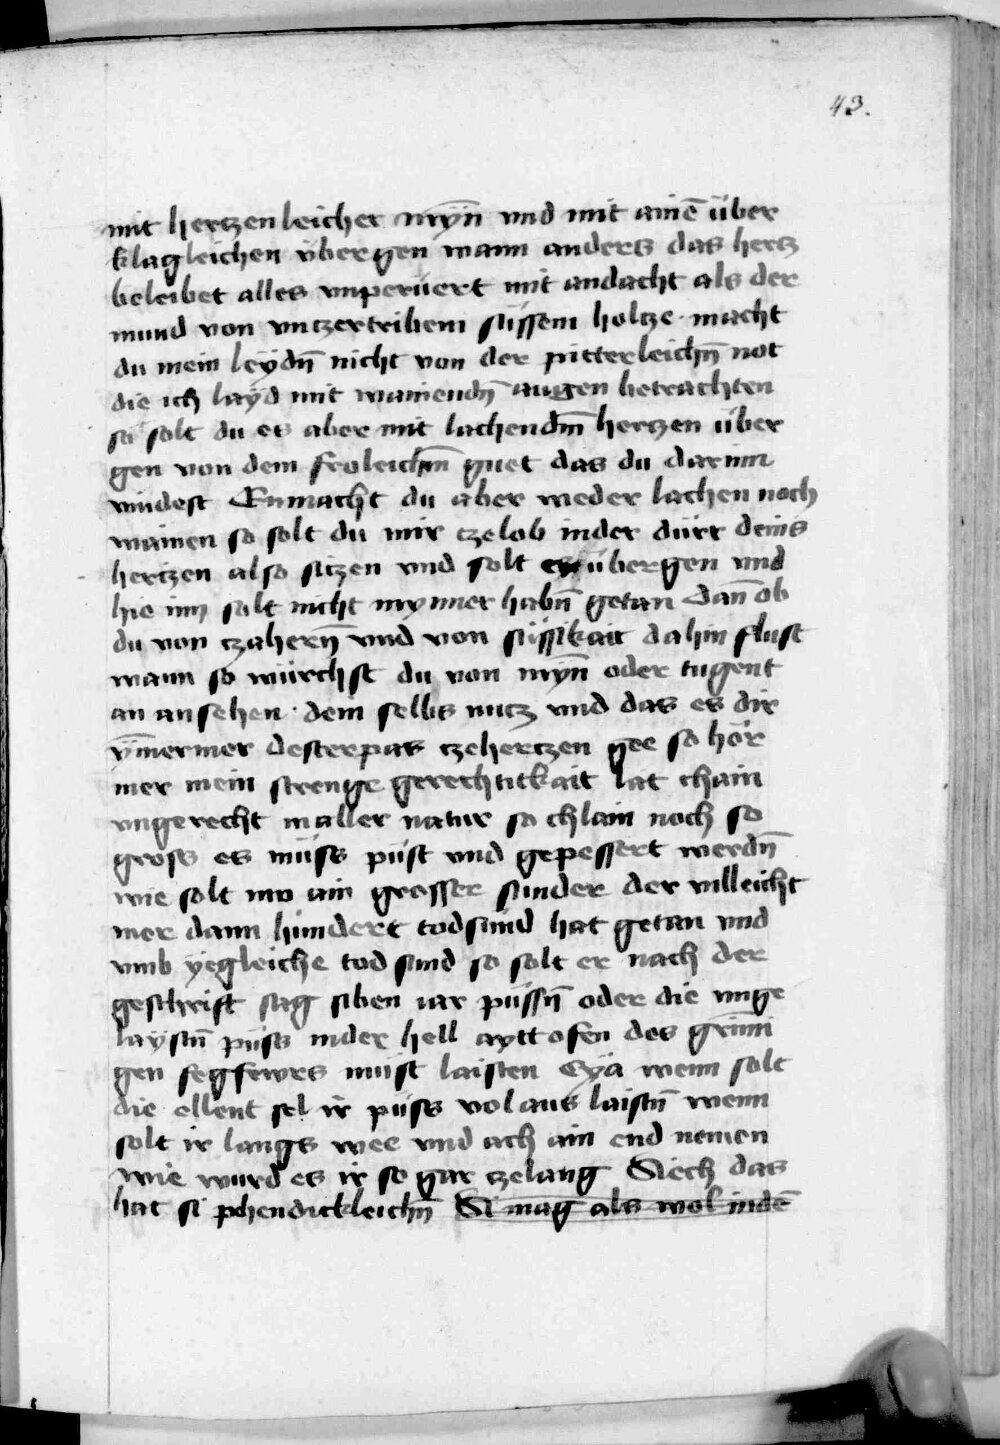 43.
mit hertzenleicher mÿn̄ vnd mit ainē über
klagleichen übergen wann anders das hertz
beleibet alles vnperüert mit andacht als der
mund von vntzertribem süssem holtze macht
du mein leÿdn̄ nicht von der pitterleichn̄ not
die ich laÿd mit wainendn̄ augen betrachten
so solt du es aber mit lachendm̄ hertzen über
gen von dem froleichm̄ guet das du darinn
vindest Enmacht du aber weder lachen noch
wainen so solt du mir tzelob inder dürr deins
hertzen also sitzen vnd solt übergen vnd
hie inn solt nicht mynner habn̄ getan Dan̄ ob
du von tzahern̄ vnd von süssikait dahin flust
wann so würchst du von mÿn̄ oder tugent
an ansehen dein selbs nutz vnd das es dir
ÿm̄ermer desterpas tzehertzen gee so hör
mer mein strenge gerechtitkait lat chain
vngerecht in aller natur so chlain noch so
gross es müss püst vnd gepessert werdn̄
wie solt nw ain grosser sunder der villeicht
mer dann hundert todsünd hat getan vnd
vmb ÿegleiche tod sund so solt er nach der
geschrift sag siben iar püssn̄ oder die vnge
laÿstn̄ püss inder hell aytt ofen des grim̄i
gen fegfewrs müst laisten Eÿa wenn solt
die ellent sel ir püss vol aus laistn̄ wenn
solt ir langs wee vnd ach ain end nemen
wie wurd es ir so gar tzelang Siech das
hat si phendickleichn̄ Si mag als wol indē